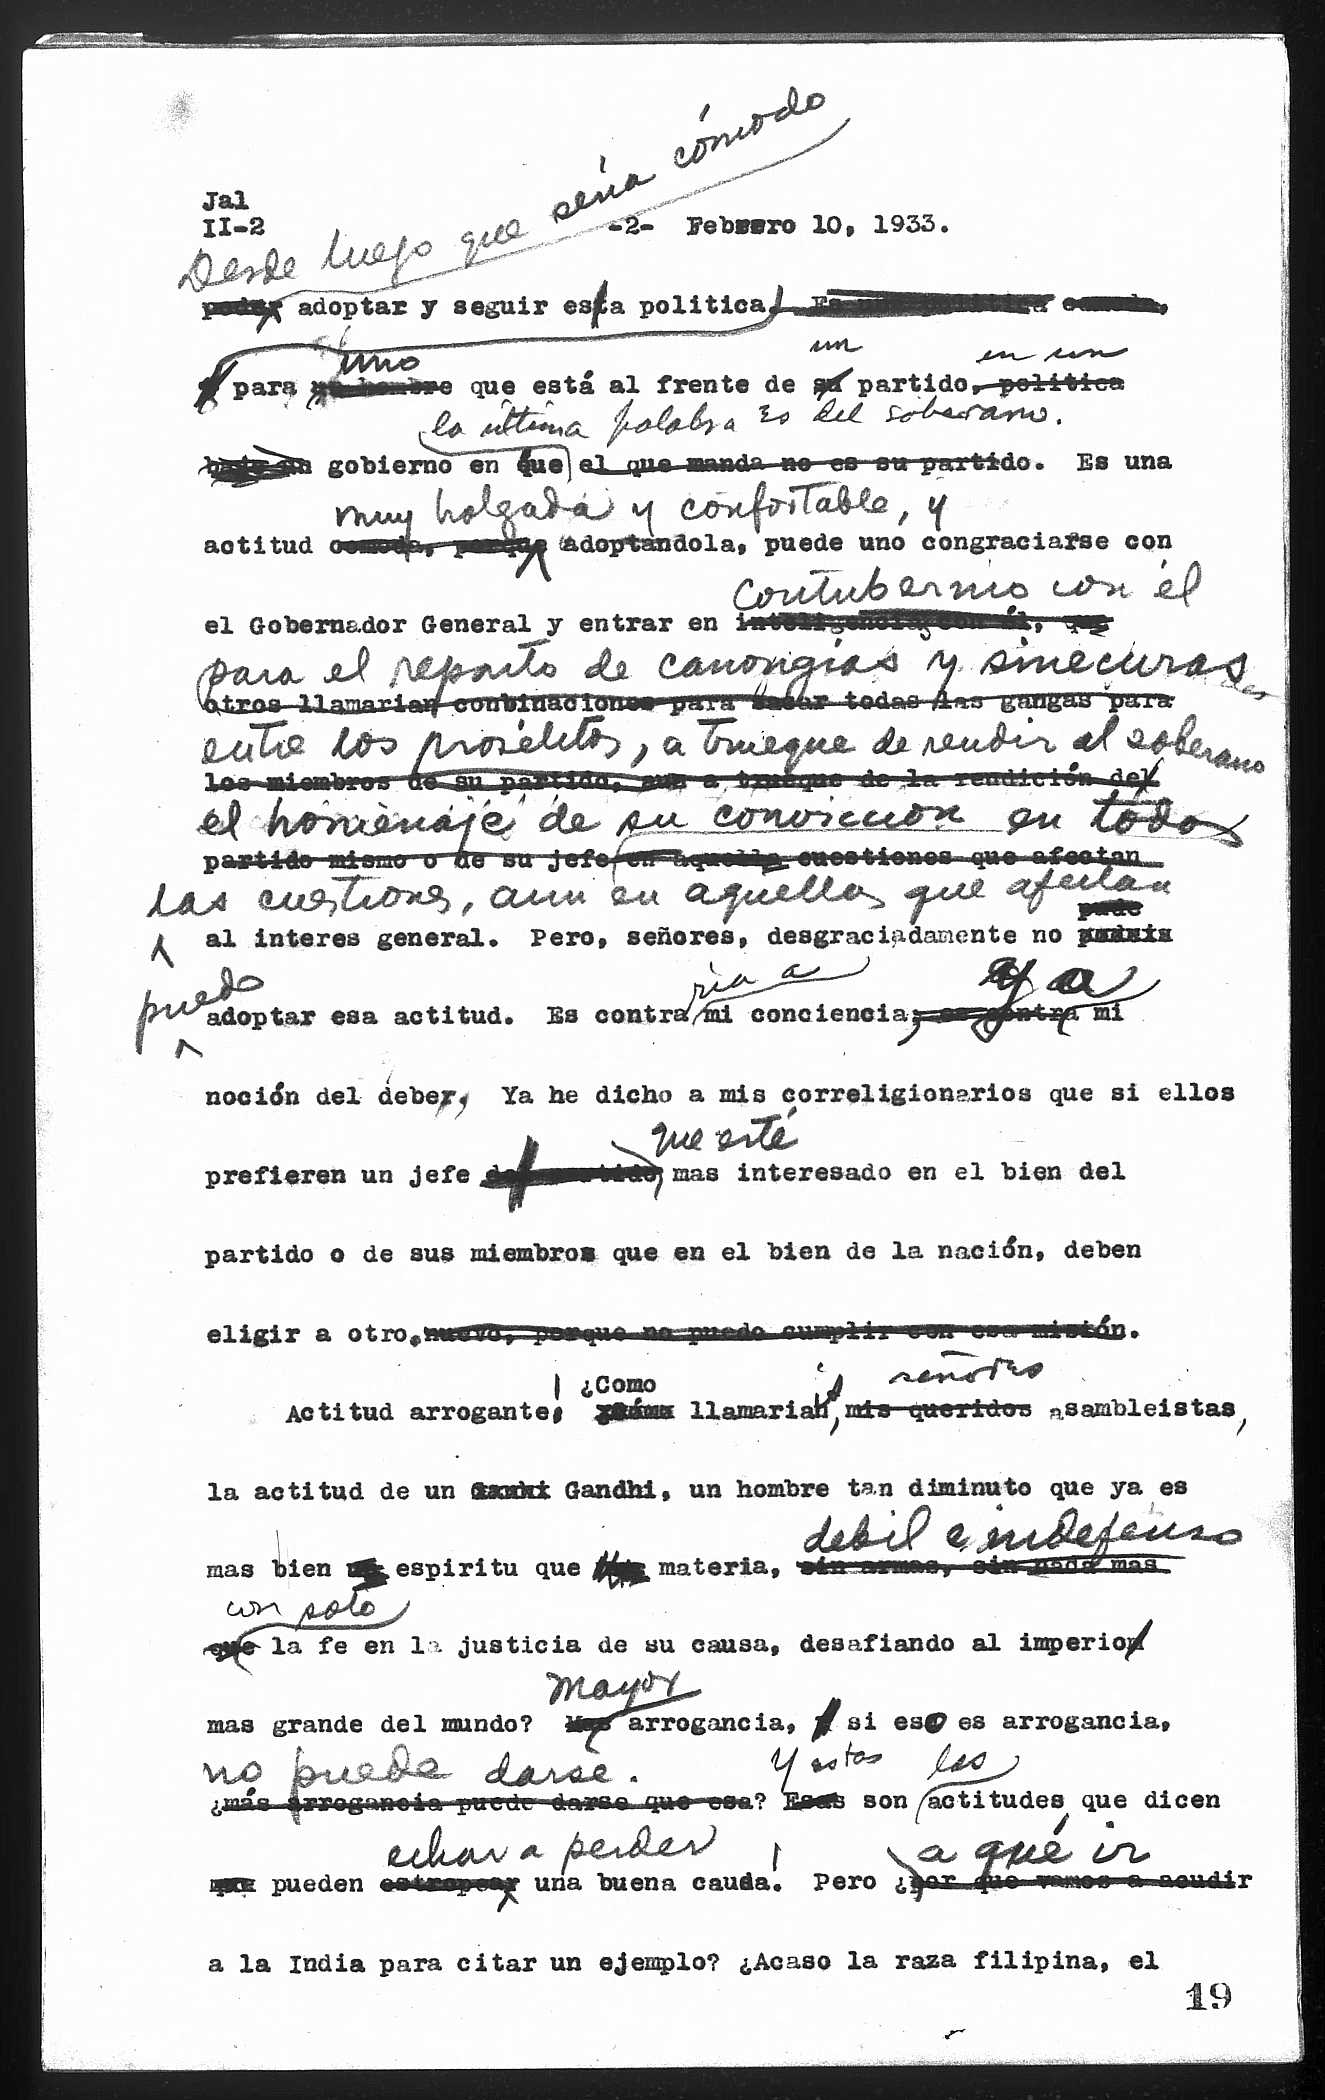 Jal
II-2 -2- Febrero 10, 1933.
Desde luego que sería cómodo
poder adoptar y seguir esta politica. Es una politica comoda,
uno un en un
para un hombre que está al frente de su partido, politica
la última palabra es del soberano.
bajo un gobierno en que el que manda no es su partido. Es una
muy holgada y confortable, y
actitud comoda, porque adoptandola, puede uno congraciarse con
contubernio con él
el Gobernador General y entrar en inteligencias con él, que
para el reparto de canongías y sinecuras
otros llamarian conbinaciones para sacar todas las gangas para
entre los prosélitos, a trueque de rendir al soberano
los miembros de su partido, aun a trueque de la rendición del
el homenaje de su convicción en todas
partido mismo o de su jefe en aquellas cuestiones que afectan
las cuestiones, aun en aquellas que afectan
pude
al interes general. Pero, señores, desgraciadamente no
puedo ria a y a
adoptar esa actitud. Es contra mi conciencia, es contra mi
noción del deber, Ya he dicho a mis correligionarios que si ellos
que esté
prefieren un jefe del partido, mas interesado en el bien del
partido o de sus miembros que en el bien de la nación, deben
eligir a otro, nuevo, porque no puedo cumplir con esa misión.
¿Como señores
Actitud arrogante! llamarian, mis queridos asambleistas,
la actitud de un Gandhi, un hombre tan diminuto que ya es
debil e indefenso
mas bien espiritu que materia, sin armas, sin nada mas
con solo
que la fe en la justicia de su causa, desafiando al imperio
mas grande del mundo? Mas arrogancia, si eso es arrogancia,
mayor
no puede darse. Y estas las
¿más arrogancia puede darse que esa? Esas son actitudes, que dicen
echar a perder a qué ir
pueden estropear una buena causa! Pero ¿por qué vamos a acudir
a la India para citar un ejemplo? ¿Acaso la raza filipina, el
19